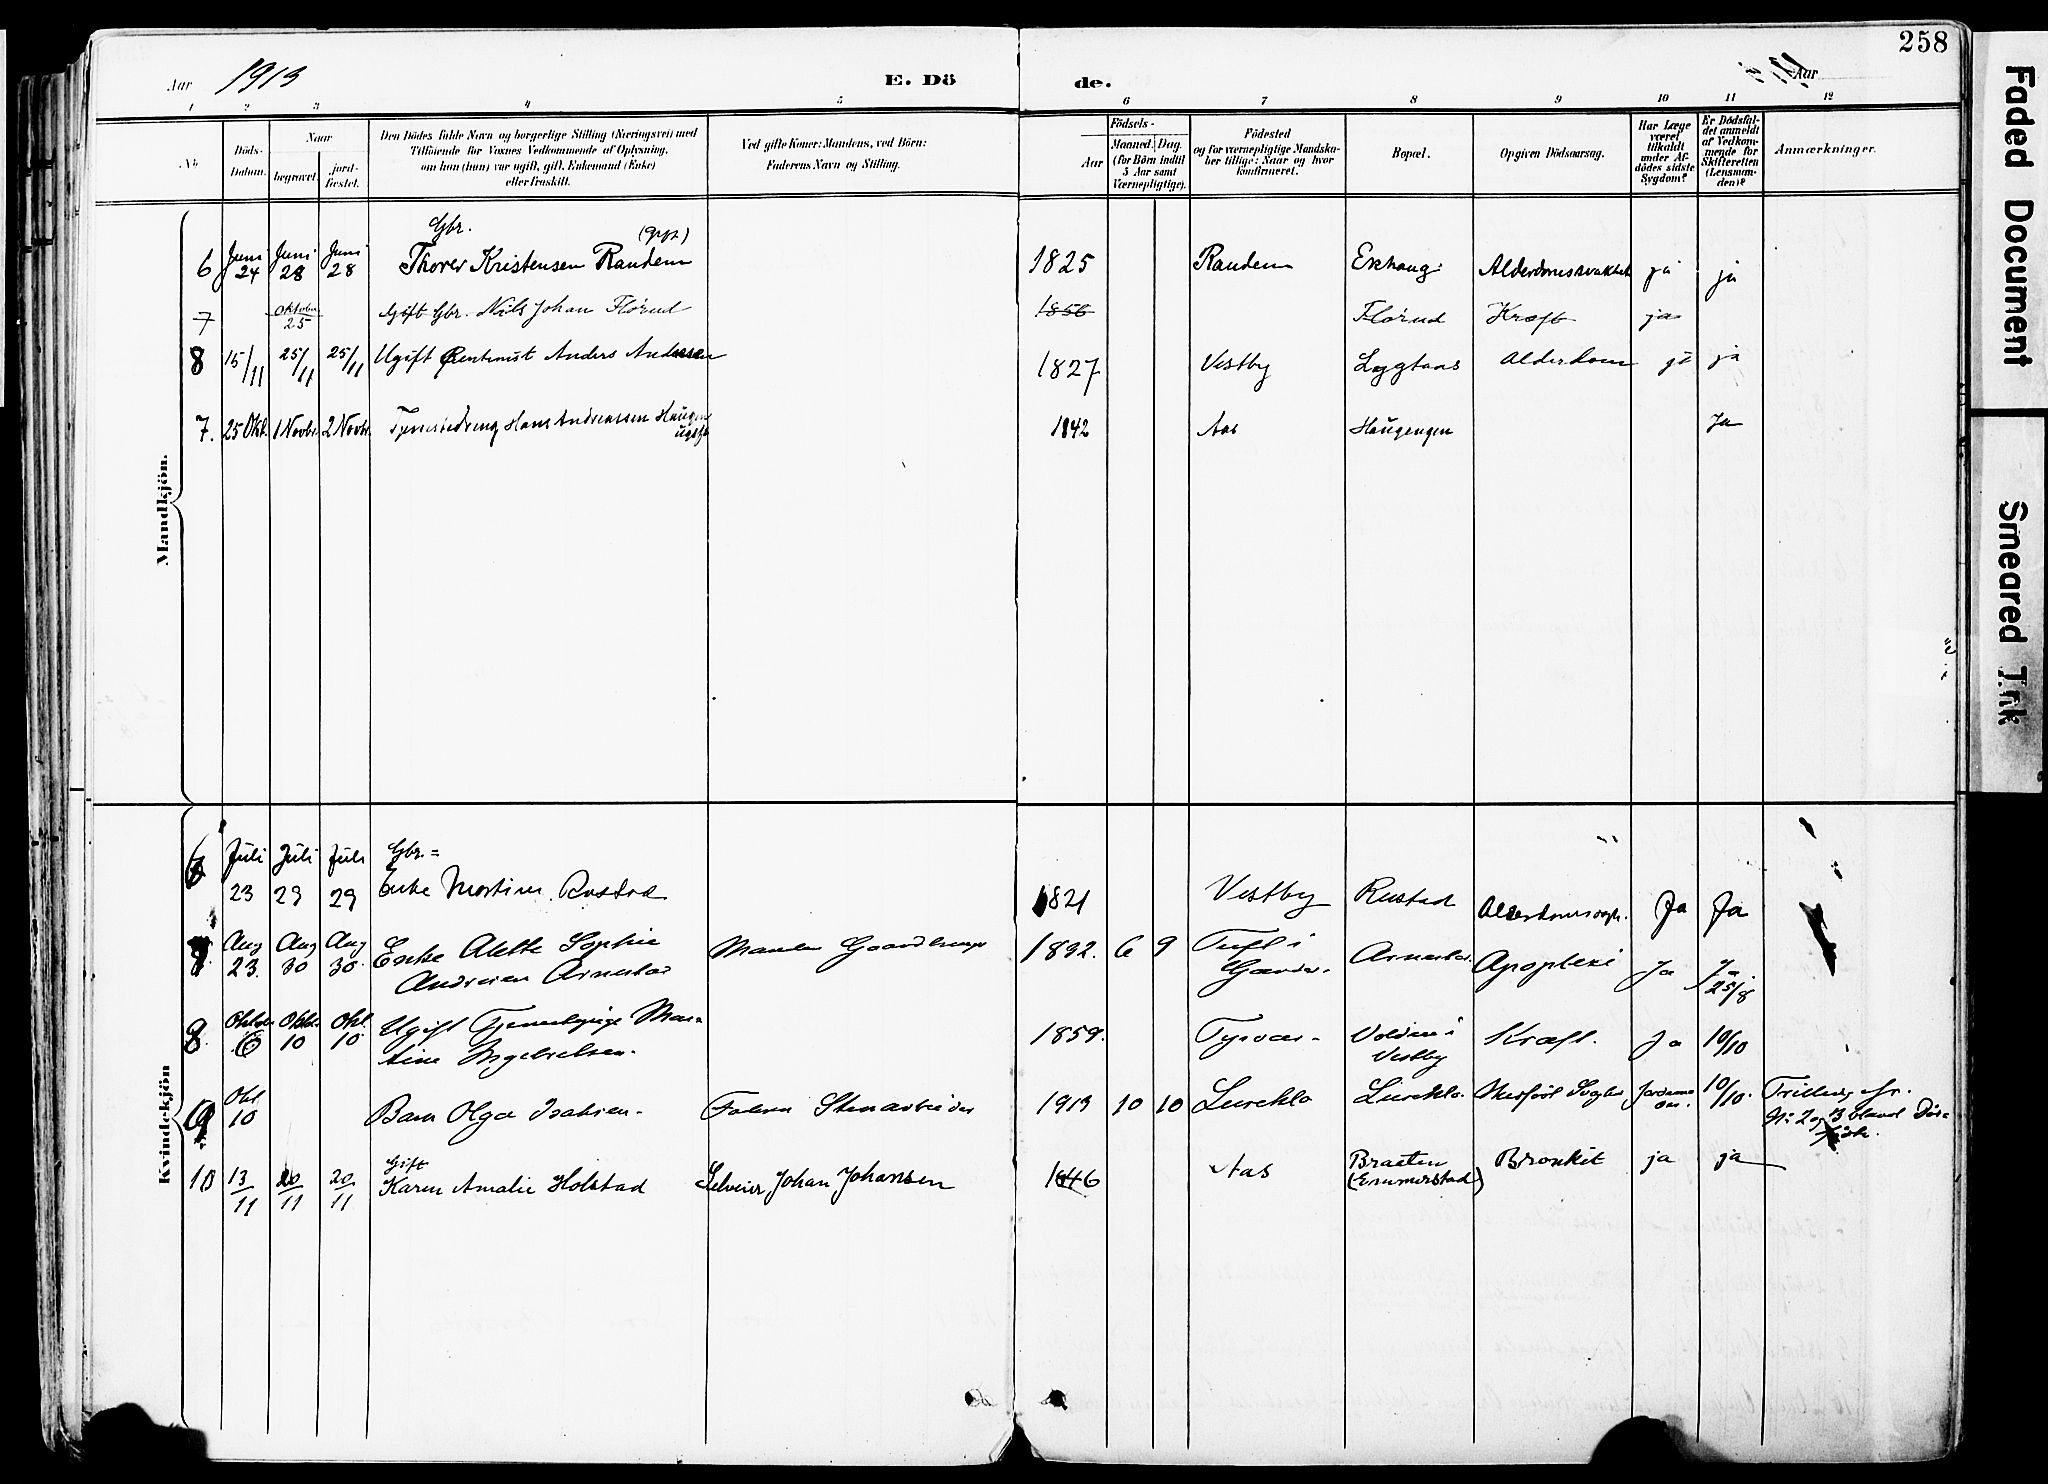 258
Aar 1913
E. Döde.
Aar
1 2 3 4 5 6 7 8 9 10 11 12
No
Döds-Datum.
Naar
begravet.
jord-fæstet.
Den Dödes fulde Navn og borgerlige Stilling (Næringsvei) med
Tilföiende for Voxnes Vedkommende af Oplysning,
om han (hun) var ugift, gift, Enkemand (Enke)
eller fraskilt.
Ved gifte Koner: Mandens, ved Börn:
Faderens Navn og Stilling.
Födsels-
Aar
Maaned. Dag.
(for Börn indtil
5 Aar samt
Værnepligtige).
Födested
og for værnepligtige Mandska-
ber tillige: Naar og hvor
konfirmeret.
Bopæl.
Opgiven Dödsaarsag.
Har Læge
været
tilkaldt
under Af-
dödes sidste
Sygdom?
Er Dödsfal-
det anmeldt
af Vedkom-
mende for
Skifteretten
(Lensman-
den)?
Anmærkninger.
Mandkjön.
Gbr.
6 Juni 24 Juni 28 Juni 28 Thorer Kristensen Randem 1825 Randem Ekhaug Alderdomssvakhet ja ja
7 Oktober 25 Gift Gbr. Nils Johan Flörud 1856 Flörud Kræft ja
8 15/11 25/11 25/11 Ugift Rentenist Anders Andersen 1827 Vestby Lygtaas Alderdom ja ja
7. 25 Okt. 1 Novbr. 2 Novbr. Tjenestedreng Hans Andreassen Haugen ugift 1842 Aas Haugengen Ja
Kvindekjön
6 Juli 23 Juli 29 Juli 29 Gbr.= Enke Martine Rustad 1821 Vestby Rustad Ja Ja
7. Aug 23. Aug 30 Aug 30. Enke Alette Sophie
Andrea Arnestad 1832. 6 9 Tuft i Apoplexi Ja Ja 25/8
8. Oktober 6 Oktbr 10 Okt. 10 Ugift Tjenestepige Mar-
tine Ingebretsen. 1859. Tysvær Volden i Vestby Kræft. Ja 10/10
9 Okt 10 Barn Olga Isaksen Faderen Stenarbeider 1913 10 10 Lurekla Lurekla Jordemo-
der. 10/10. Trilling fr.
No 2 og 3 bland Död-
födte.
10 13/11 20/11 20/11 Gift
Karen Amalie Holstad Selveier Johan Johansen 1846 Aas Braaten
(Emmerstad) Bronkit ja ja
Faded Document
Smeared Ink